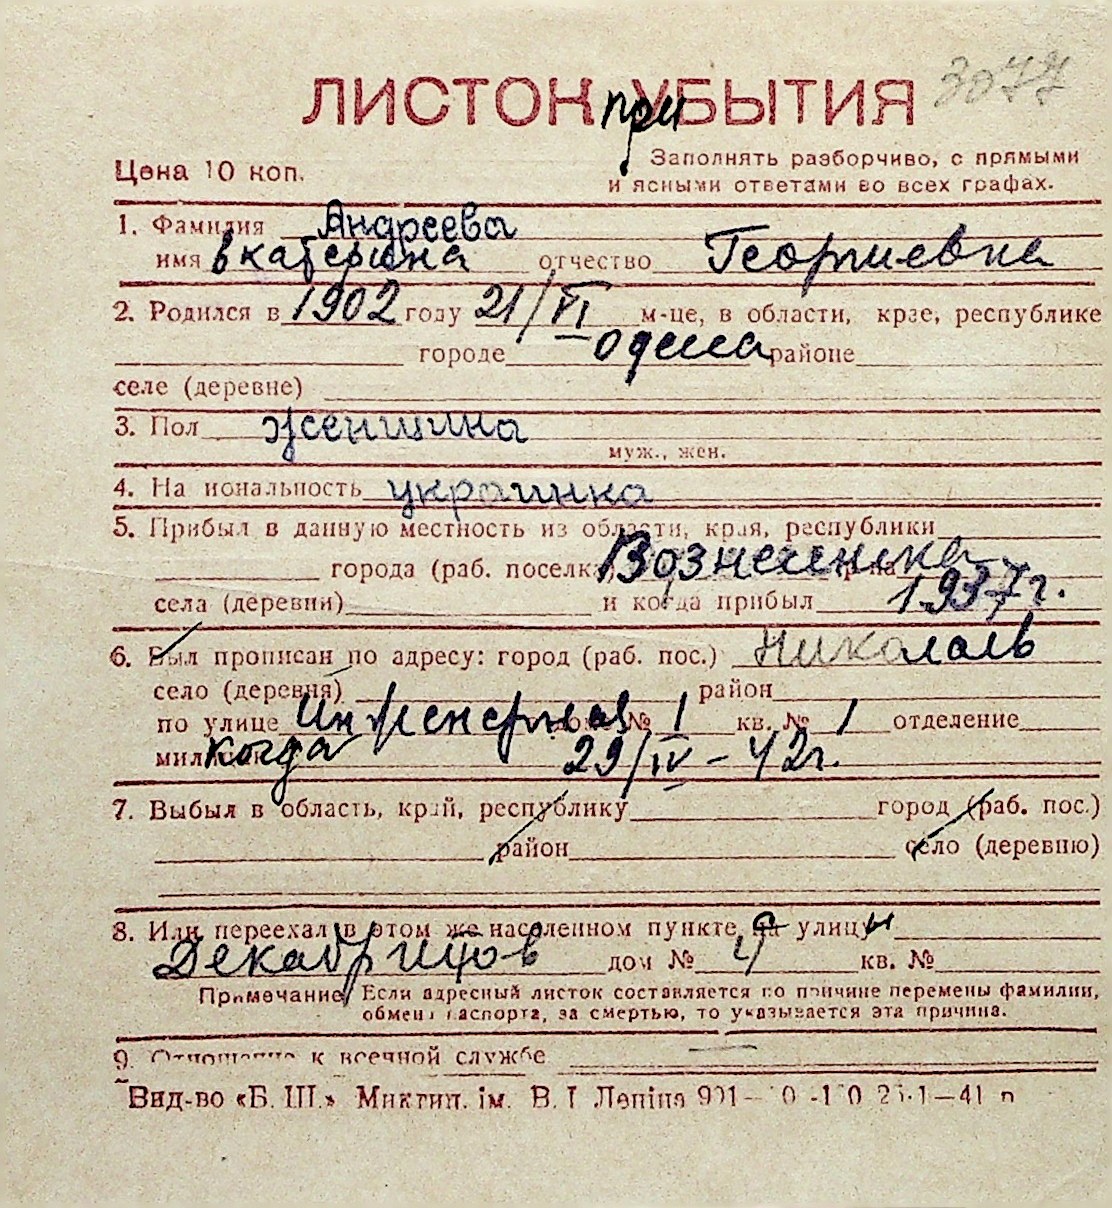 3077
ЛИСТОК при УБЫТИЯ
Цена 10 коп.
Заполнять разборчиво, с прямыми
и ясными ответами во всех графах.
1. Фамилия Андреева
имя Екатерина отчество Георгиевна
2. Родился в 1902 году 21/VI м-це, в области, крае, республике
городе Одесса районе
селе (деревне)
3. Пол женщина
муж., жен.
4. Национальность украинка
5. Прибыл в данную местность из области, края, республики
города (раб. поселка) Вознесенска
села (деревни) и когда прибыл 1937 г.
6. Был прописан по адресу: город (раб. пос.) Николаев
село (деревня) район
по улице Инженерная дом № 1 кв. № 1 отделение
милиции когда 29/IV – 42 г.
7. Выбыл в область, край, республику город (раб. пос.)
район село (деревню)
8. Или переехал в этом же населенном пункте на улицу
Декабристов дом № 4 кв. №
Примечание: Если адресный листок составляется по причине перемены фамилии,
обмена паспорта, за смертью, то указывается эта причина.
9. Отношение к военной службе
Вид-во «Б. Ш.» Миктип. ім. В. І. Леніна